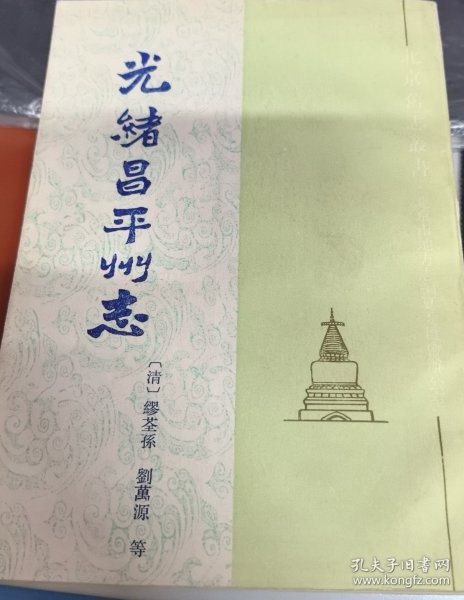 光緒昌平州志
〔清〕繆荃孫 劉萬源 等
孔夫子旧书网
www.kongfz.com